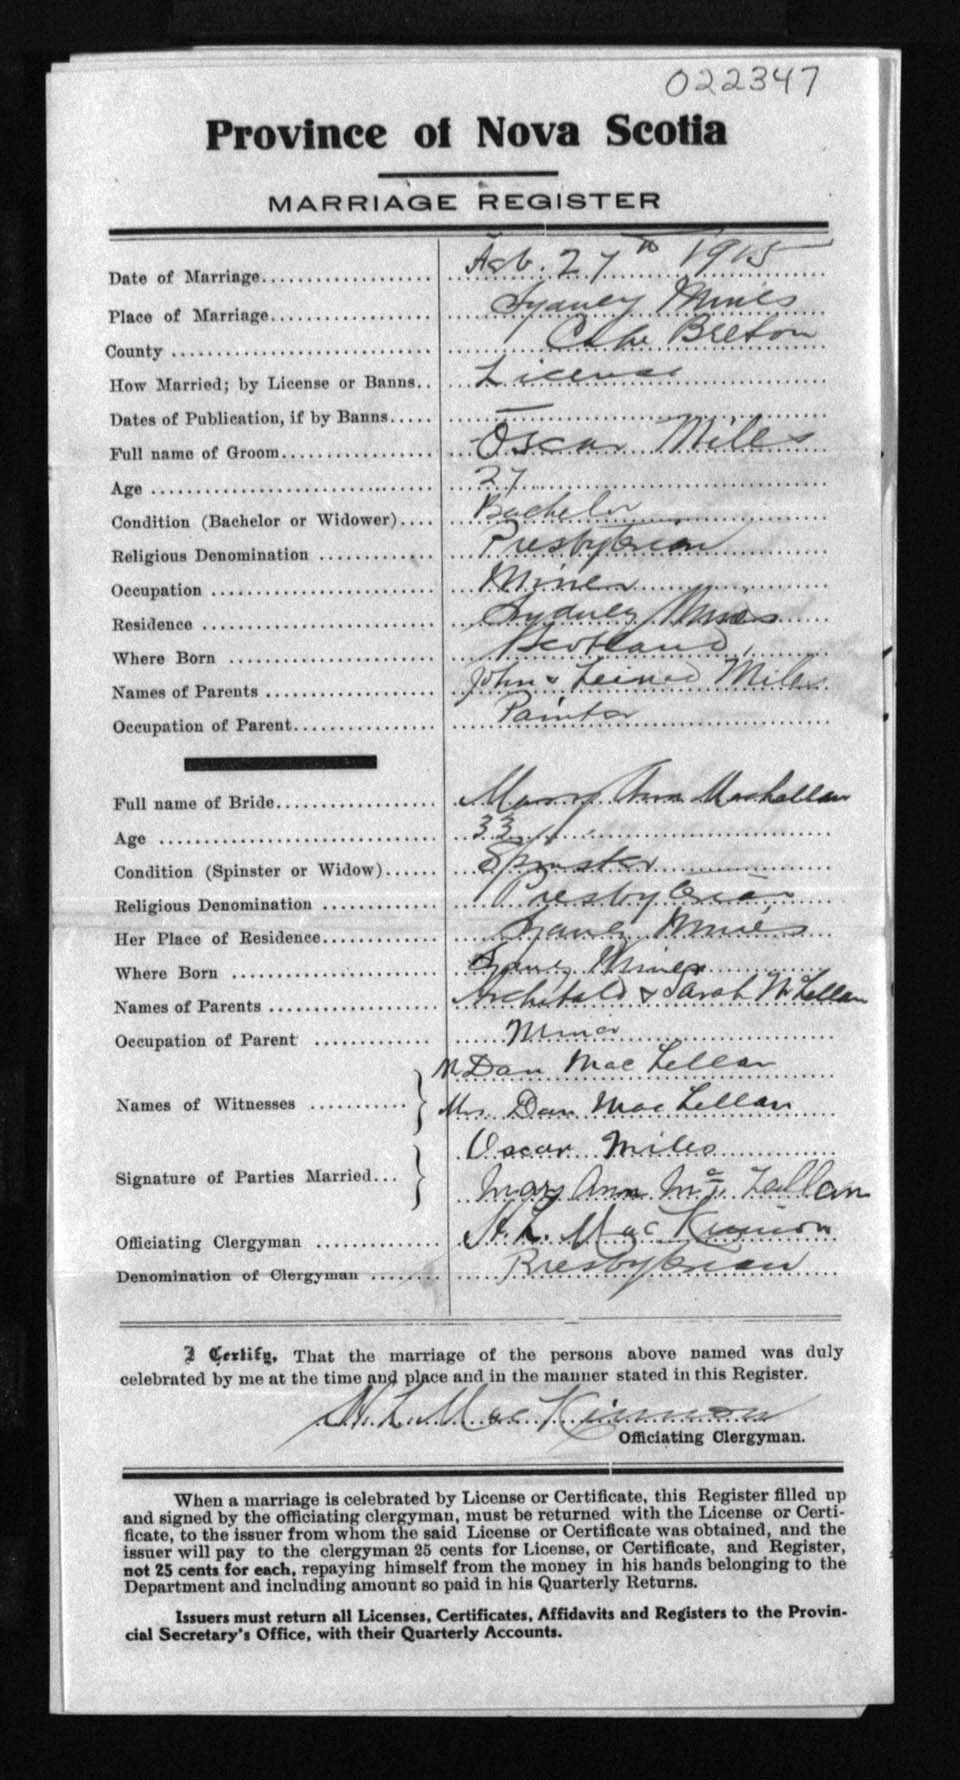 022347
Province of Nova Scotia
MARRIAGE REGISTER
Date of Marriage Feb. 27th 1915
Place of Marriage Sydney Mines
County Cape Breton
How Married; by License or Banns License
Dates of Publication, if by Banns —
Full name of Groom Oscar Miles
Age 27
Condition (Bachelor or Widower) Bachelor
Religious Denomination Presbyterian
Occupation Miner
Residence Sydney Mines
Where Born Scotland
Names of Parents John & Miles
Occupation of Parent Painter
Full name of Bride Mary Ann MacLellan
Age 33
Condition (Spinster or Widow) Spinster
Religious Denomination Presbyterian
Her Place of Residence Sydney Mines
Where Born Sydney Mines
Names of Parents Archibald & Sarah McLellan
Occupation of Parent Miner
Names of Witnesses Dan MacLellan
Mrs Dan MacLellan
Signature of Parties Married Oscar Miles
Mary Ann McLellan
Officiating Clergyman A. L. MacKinnon
Denomination of Clergyman Presbyterian
I Certify, That the marriage of the persons above named was duly
celebrated by me at the time and place and in the manner stated in this Register.
A. L. MacKinnon
Officiating Clergyman.
When a marriage is celebrated by License or Certificate, this Register filled up
and signed by the officiating clergyman, must be returned with the License or Certi-
ficate, to the issuer from whom the said License or Certificate was obtained, and the
issuer will pay to the clergyman 25 cents for License, or Certificate, and Register,
not 25 cents for each, repaying himself from the money in his hands belonging to the
Department and including amount so paid in his Quarterly Returns.
Issuers must return all Licenses, Certificates, Affidavits and Registers to the Provin-
cial Secretary's Office, with their Quarterly Accounts.